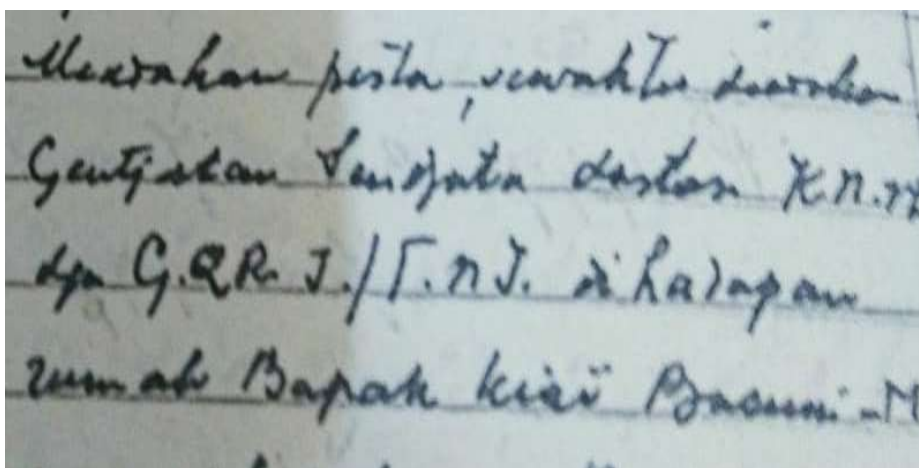 Merajakan pesta, sewaktu diadakan
Gentjatan Sendjata antara K.N.
dgn G.R.R.I./T.N.I. di hadapan
rumah Bapak kiai Basuni-M